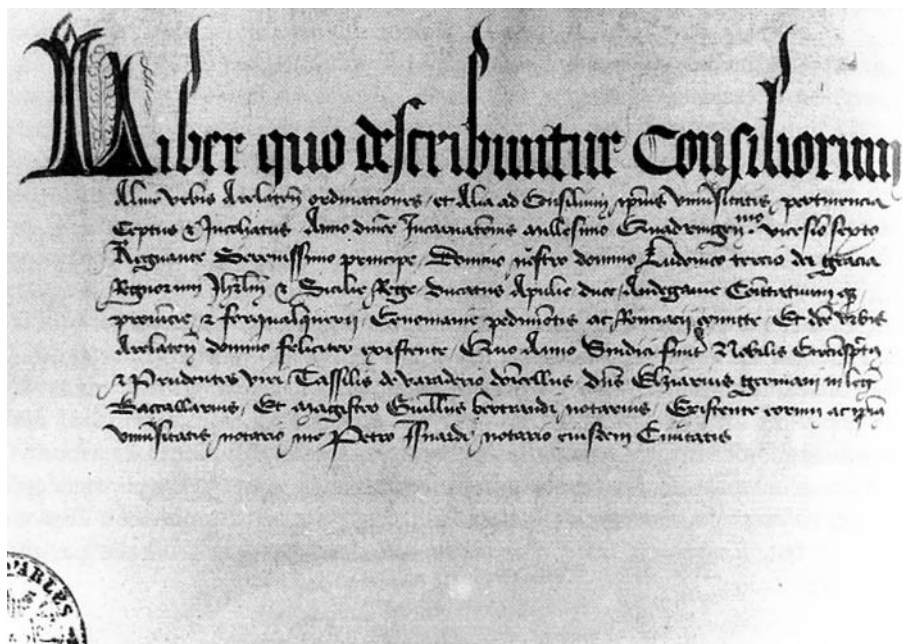 Liber quo describuntur Consiliorum
Alme Urbis Arelaten ordinationes et Alia ad Consilium ipius Universitatis pertinencia
Ceptus & Incohatus Anno dnice Incarnationis millesimo Quadringenmo vicesio septo
Regnante Serenissimo principe Domino nostro domino Ludovico tercio dei gracia
Regnorum Jhrlm & Sicilie Rege ducatus Apulie duce Andegavie Comitatuum
provincie & forqualquerii Cenomanie pedimontis ac comite Et dce Urbis
Arelaten domino feliciter existente Quo Anno Sindici Nobilis
& Prudentes viri Tassilis de varaderio domicellus dns Elziarius germani in
Baccallarius Et magister Guillus bertrandi notarius Existente eorum ac ipius
universitatis notario me Petro Isnardi notario eiusdem Civitatis
D'ARLES